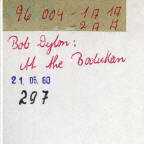 96 004 - 1 17 17
2 17 17
Bob Dylon:
At the Budukan
21. 05. 80
297